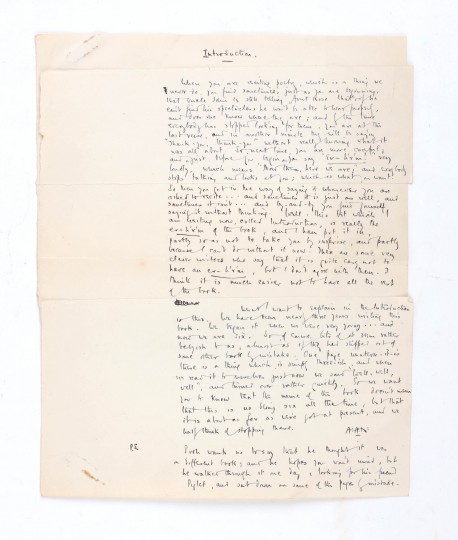 Introduction.
When you are reciting poetry, which is a thing we
never do, you find sometimes, just as you are beginning,
that Uncle John is still telling Aunt Rose that if he
can't find his spectacles he won't be able to hear properly,
and does she know where they are; and by the time
everybody has stopped looking for them, you are at the
last verse, and in another minute they will be saying
"Thank-you, thank-you" without really knowing what it
was all about. So next time you are more careful,
and, just before you begin you say "Er-h'r'm," very
loudly, which means "Now then, here we are"; and everybody
stops talking and looks at you, which is what you want.
So then you get in the way of saying it whenever you are
asked to recite... and sometimes it is just as well, and
sometimes it isn't... And by and by you find yourself
saying it without thinking. Well, this bit which I
am writing now, called Introduction, is really the
er-h'r'm of the book, and I have put it in,
partly so as not to take you by surprise, and partly
because I can't do without it now. There are some very
clever writers who say that it is quite easy not to
have an er-h'r'm, but I don't agree with them. I
think it is much easier not to have all the rest
of the book.
What I want to explain in the Introduction
is this. We have been nearly three years writing this
book. We began it when we were very young... and
now we are six. So, of course, bits of it seem rather
babyish to us, almost as if they had slipped out of
some other book by mistake. On page whatever-it-is
there is a thing which is simply three-ish, and when
we read it to ourselves just now we said "Well, well,
well," and turned over rather quickly. So we want
you to know that the name of the book doesn't mean
that this is us being six all the time, but that
it is about as far as we've got at present, and we
half think of stopping there.
A.A.M.
P.S.
Pooh wants us to say that he thought it was
a different book; and he hopes you won't mind, but
he walked through it one day, looking for his friend
Piglet, and sat down on some of the pages by mistake.